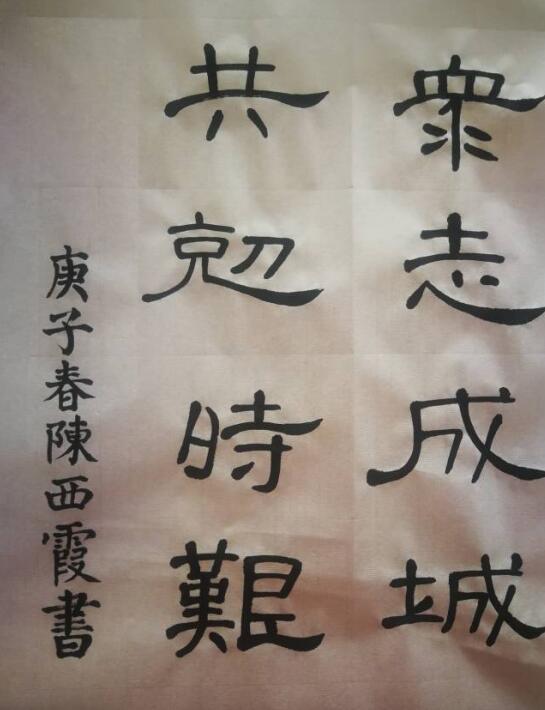 衆志成城
共剋時艱
庚子春陳西霞書